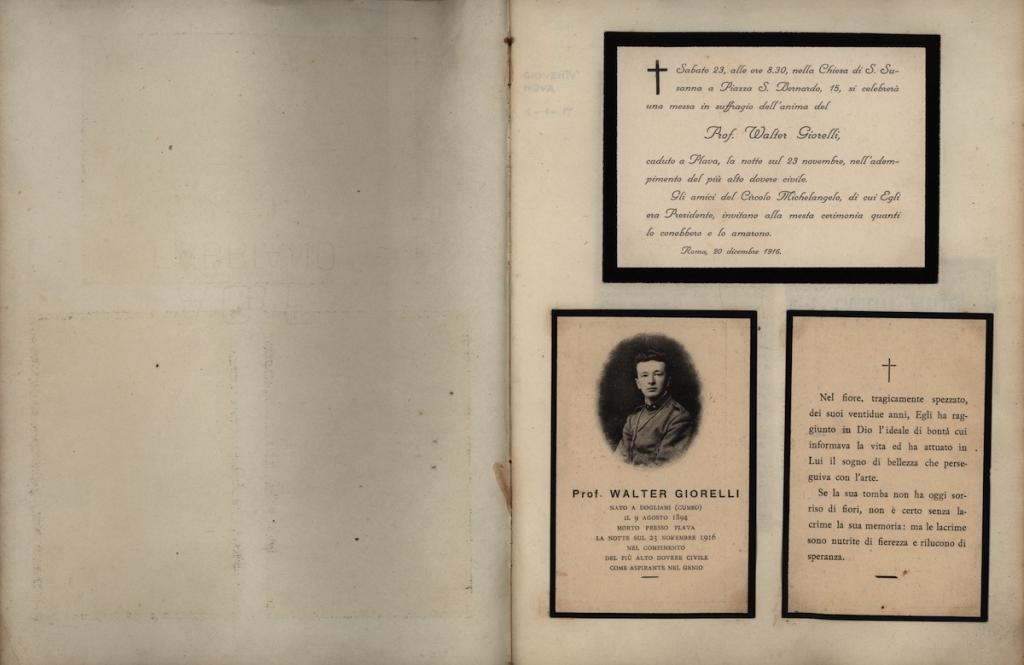 Sabato 23, alle ore 8.30, nella Chiesa di S. Su-
sanna a Piazza S. Bernardo, 15, si celebrerà
una messa in suffragio dell'anima del
Prof. Walter Giorelli,
caduto a Plava, la notte sul 23 novembre, nell'adem-
pimento del più alto dovere civile.
Gli amici del Circolo Michelangelo, di cui Egli
era Presidente, invitano alla mesta cerimonia quanti
lo conobbero e lo amarono.
Roma, 20 dicembre 1916.
Prof. WALTER GIORELLI
NATO A DOGLIANI (CUNEO)
IL 9 AGOSTO 1894
MORTO PRESSO PLAVA
LA NOTTE SUL 23 NOVEMBRE 1916
NEL COMPIMENTO
DEL PIÙ ALTO DOVERE CIVILE
COME ASPIRANTE NEL GENIO
Nel fiore, tragicamente spezzato,
dei suoi ventidue anni, Egli ha rag-
giunto in Dio l'ideale di bontà cui
informava la vita ed ha attuato in
Lui il sogno di bellezza che perse-
guiva con l'arte.
Se la sua tomba non ha oggi sor-
riso di fiori, non è certo senza la-
crime la sua memoria: ma le lacrime
sono nutrite di fierezza e rilucono di
speranza.